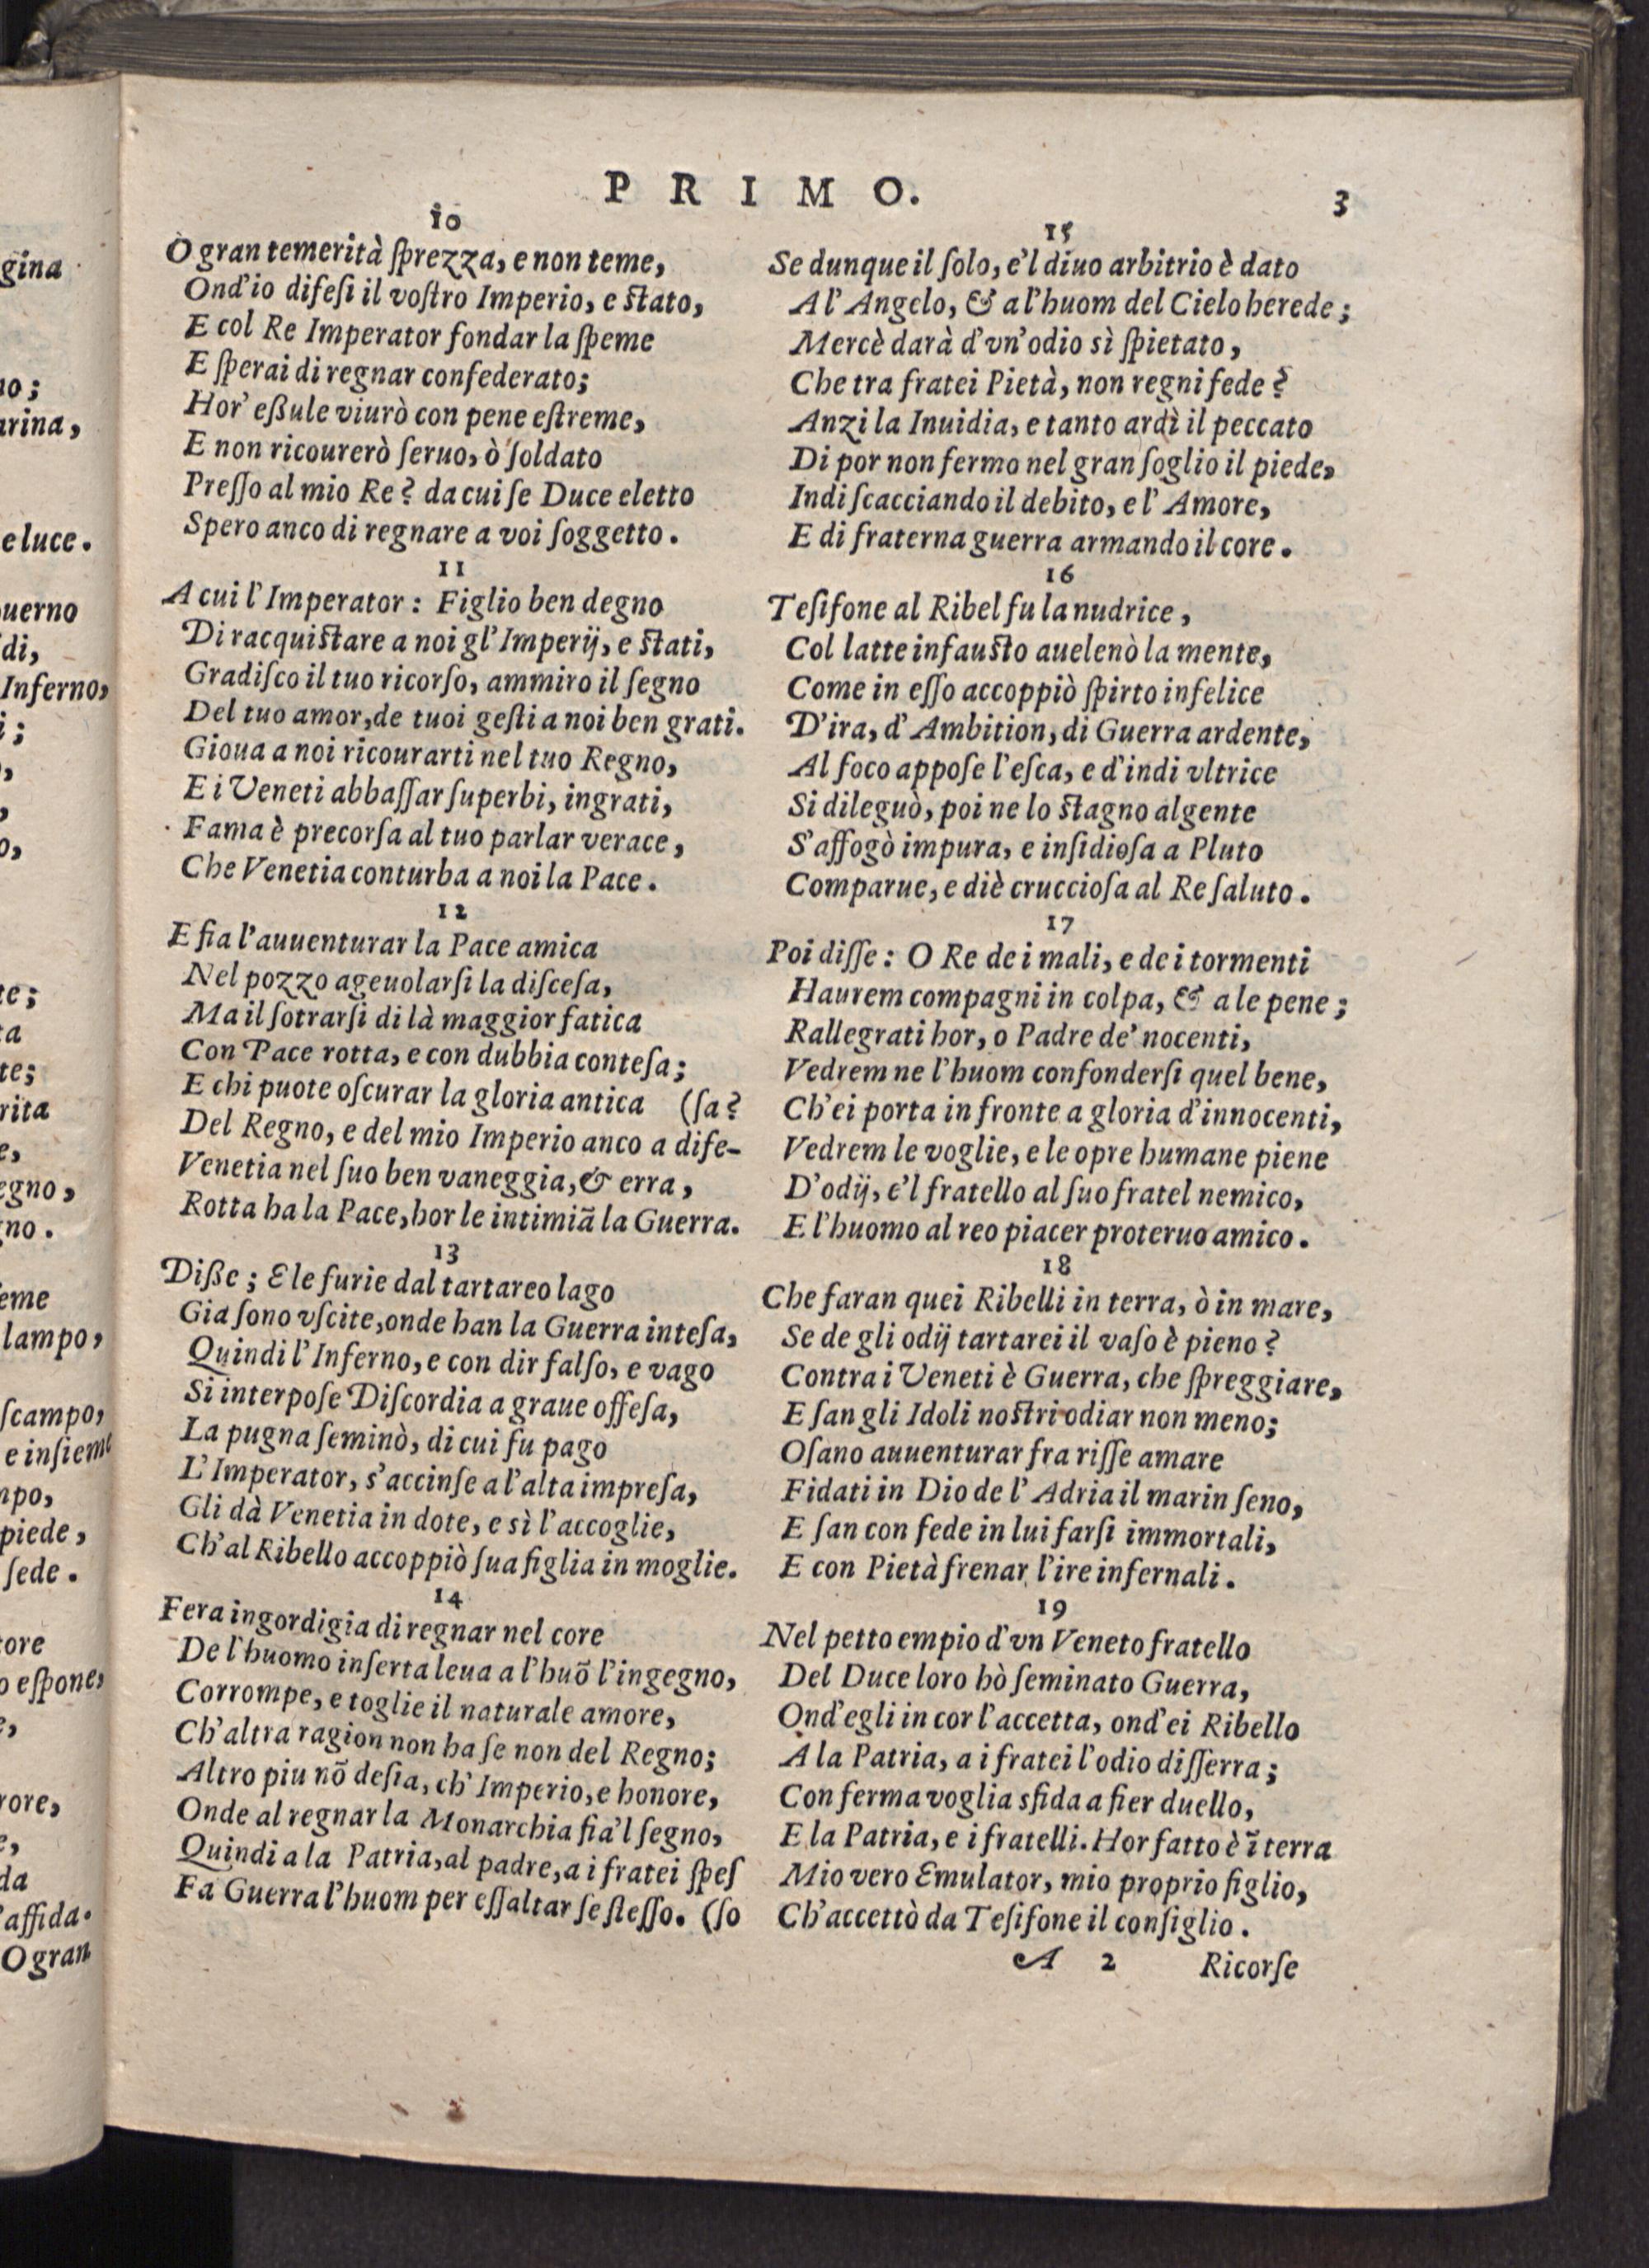 PRIMO.
3
10
O gran temerità ſprezza, e non teme,
Ond'io difeſi il voſtro Imperio, e ſtato,
E col Re Imperator fondar la ſpeme
E ſperai di regnar confederato;
Hor' eßule viurò con pene eſtreme,
E non ricourerò ſeruo, ò ſoldato
Preſſo al mio Re? da cui ſe Duce eletto
Spero anco di regnare a voi ſoggetto.
11
A cui l'Imperator: Figlio ben degno
Di racquiſtare a noi gl'Imperij, e ſtati,
Gradiſco il tuo ricorſo, ammiro il ſegno
Del tuo amor, de tuoi geſti a noi ben grati.
Gioua a noi ricourarti nel tuo Regno,
E i Veneti abbaſſar ſuperbi, ingrati,
Fama è precorſa al tuo parlar verace,
Che Venetia conturba a noi la Pace.
12
E fia l'auuenturar la Pace amica
Nel pozzo ageuolarſi la diſceſa,
Ma il ſotrarſi di là maggior fatica
Con Pace rotta, e con dubbia conteſa;
E chi puote oſcurar la gloria antica (ſa?
Del Regno, e del mio Imperio anco a dife-
Venetia nel ſuo ben vaneggia, & erra,
Rotta ha la Pace, hor le intimiã la Guerra.
13
Diße; E le furie dal tartareo lago
Gia ſono vſcite, onde han la Guerra inteſa,
Quindi l'Inferno, e con dir falſo, e vago
Si interpoſe Diſcordia a graue offeſa,
La pugna ſeminò, di cui fu pago
L'Imperator, s'accinſe a l'alta impreſa,
Gli dà Venetia in dote, e sì l'accoglie,
Ch'al Ribello accoppiò ſua figlia in moglie.
14
Fera ingordigia di regnar nel core
De l'huomo inſerta leua a l'huõ l'ingegno,
Corrompe, e toglie il naturale amore,
Ch'altra ragion non ha ſe non del Regno;
Altro piu nõ deſia, ch' Imperio, e honore,
Onde al regnar la Monarchia fia'l ſegno,
Quindi a la Patria, al padre, a i fratei ſpeſ
Fa Guerra l'huom per eſſaltar ſe ſteſſo. (ſo
15
Se dunque il ſolo, e'l diuo arbitrio è dato
A l'Angelo, & a l'huom del Cielo herede;
Mercè darà d'vn' odio sì ſpietato,
Che tra fratei Pietà, non regni fede?
Anzi la Inuidia, e tanto ardì il peccato
Di por non fermo nel gran ſoglio il piede,
Indi ſcacciando il debito, e l'Amore,
E di fraterna guerra armando il core.
16
Teſifone al Ribel fu la nudrice,
Col latte infauſto auelenò la mente,
Come in eſſo accoppiò ſpirto infelice
D'ira, d'Ambition, di Guerra ardente,
Al foco appoſe l'eſca, e d'indi vltrice
Si dileguò, poi ne lo ſtagno algente
S'affogò impura, e inſidioſa a Pluto
Comparue, e diè crucciofa al Re ſaluto.
17
Poi diſſe: O Re de i mali, e de i tormenti
Haurem compagni in colpa, & a le pene;
Rallegrati hor, o Padre de' nocenti,
Vedrem ne l'huom confonderſi quel bene,
Ch'ei porta in fronte a gloria d'innocenti,
Vedrem le voglie, e le opre humane piene
D'odij, e'l fratello al ſuo fratel nemico,
E l'huomo al reo piacer proteruo amico.
18
Che faran quei Ribelli in terra, ò in mare,
Se de gli odij tartarei il vaſo è pieno?
Contra i Veneti è Guerra, che ſpreggiare,
E ſan gli Idoli noſtri odiar non meno;
Oſano auuenturar fra riſſe amare
Fidati in Dio de l'Adria il marin ſeno,
E ſan con fede in lui farſi immortali,
E con Pietà frenar l'ire infernali.
19
Nel petto empio d'vn Veneto fratello
Del Duce loro hò ſeminato Guerra,
Ond'egli in cor l'accetta, ond'ei Ribello
A la Patria, a i fratei l'odio diſſerra;
Con ferma voglia sfida a fier duello,
E la Patria, e i fratelli. Hor fatto è ĩ terra
Mio vero Emulator, mio proprio figlio,
Ch'accettò da Teſifone il conſiglio.
A 2 Ricorſe